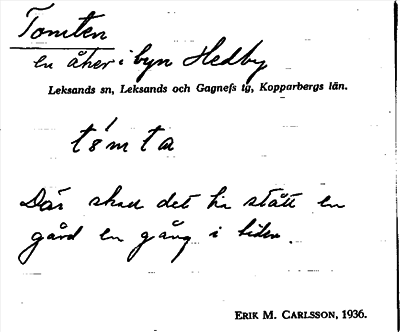 Tomten
en åker i byn Hedby
Leksands sn, Leksands och Gagnefs tg, Kopparbergs län.
Där skall det ha stått en
gård en gång i tiden.
ERIK M. CARLSSON, 1936.